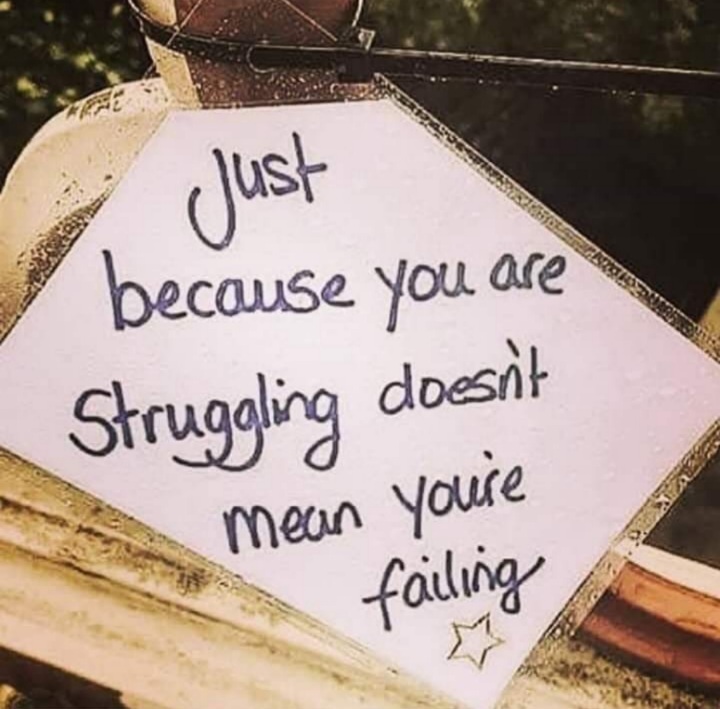 Just
because you are
Struggling doesn't
mean you're
failing